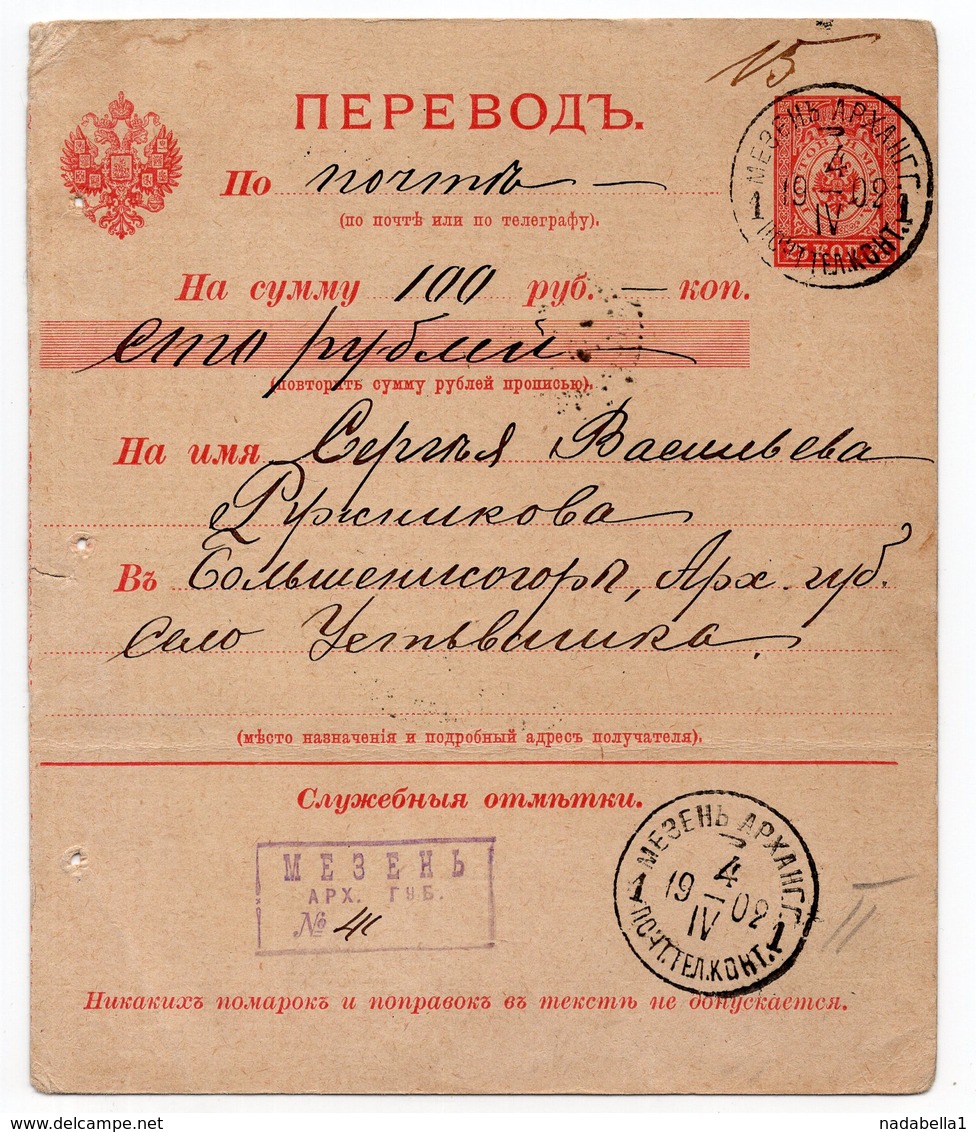 15
ПЕРЕВОДЪ.
По почтѣ —
(по почтѣ или по телеграфу).
На сумму 100 руб. — коп.
сто рублей
(повторить сумму рублей прописью).
На имя Сергѣя Васильева
Ружникова
Въ Большенисогоры, Арх. губ.
село Устьвашка.
(мѣсто назначенія и подробный адресъ получателя).
Служебныя отмѣтки.
МЕЗЕНЬ АРХАНГ. Г.
4
19 02
IV
1 1
ПОЧТ. ТЕЛ. КОНТ.
МЕЗЕНЬ
АРХ. ГУБ.
№
МЕЗЕНЬ АРХАНГ. Г.
4
19 02
IV
1 1
ПОЧТ. ТЕЛ. КОНТ.
Никакихъ помарокъ и поправокъ въ текстѣ не допускается.
nadabella1